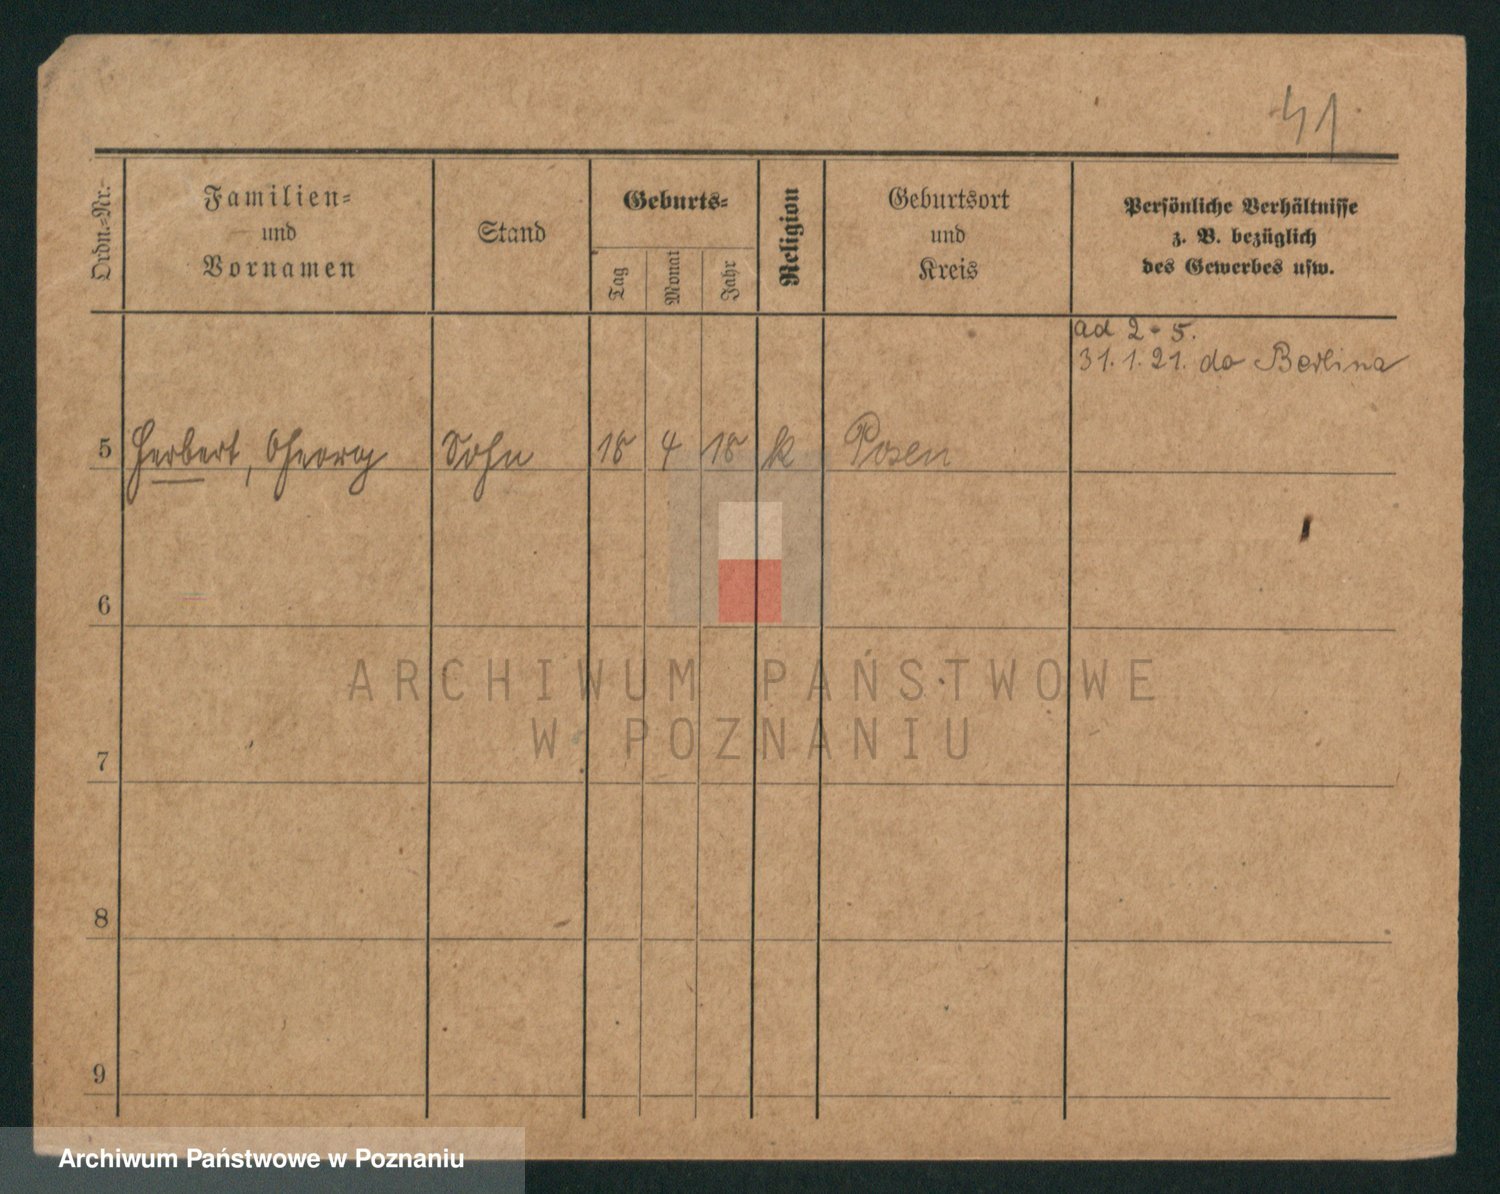 41
Ordn.-Nr.
Familien-
und
Vornamen
Stand
Geburts-
Tag
Monat
Jahr
Religion
Geburtsort
und
Kreis
Persönliche Verhältnisse
z. B. bezüglich
des Gewerbes usw.
ad 2-5.
31.1.21. do Berlina
5 Herbert, Georg Sohn 18 4 18 k Posen
6
7
8
9
ARCHIWUM PAŃSTWOWE
W POZNANIU
Archiwum Państwowe w Poznaniu